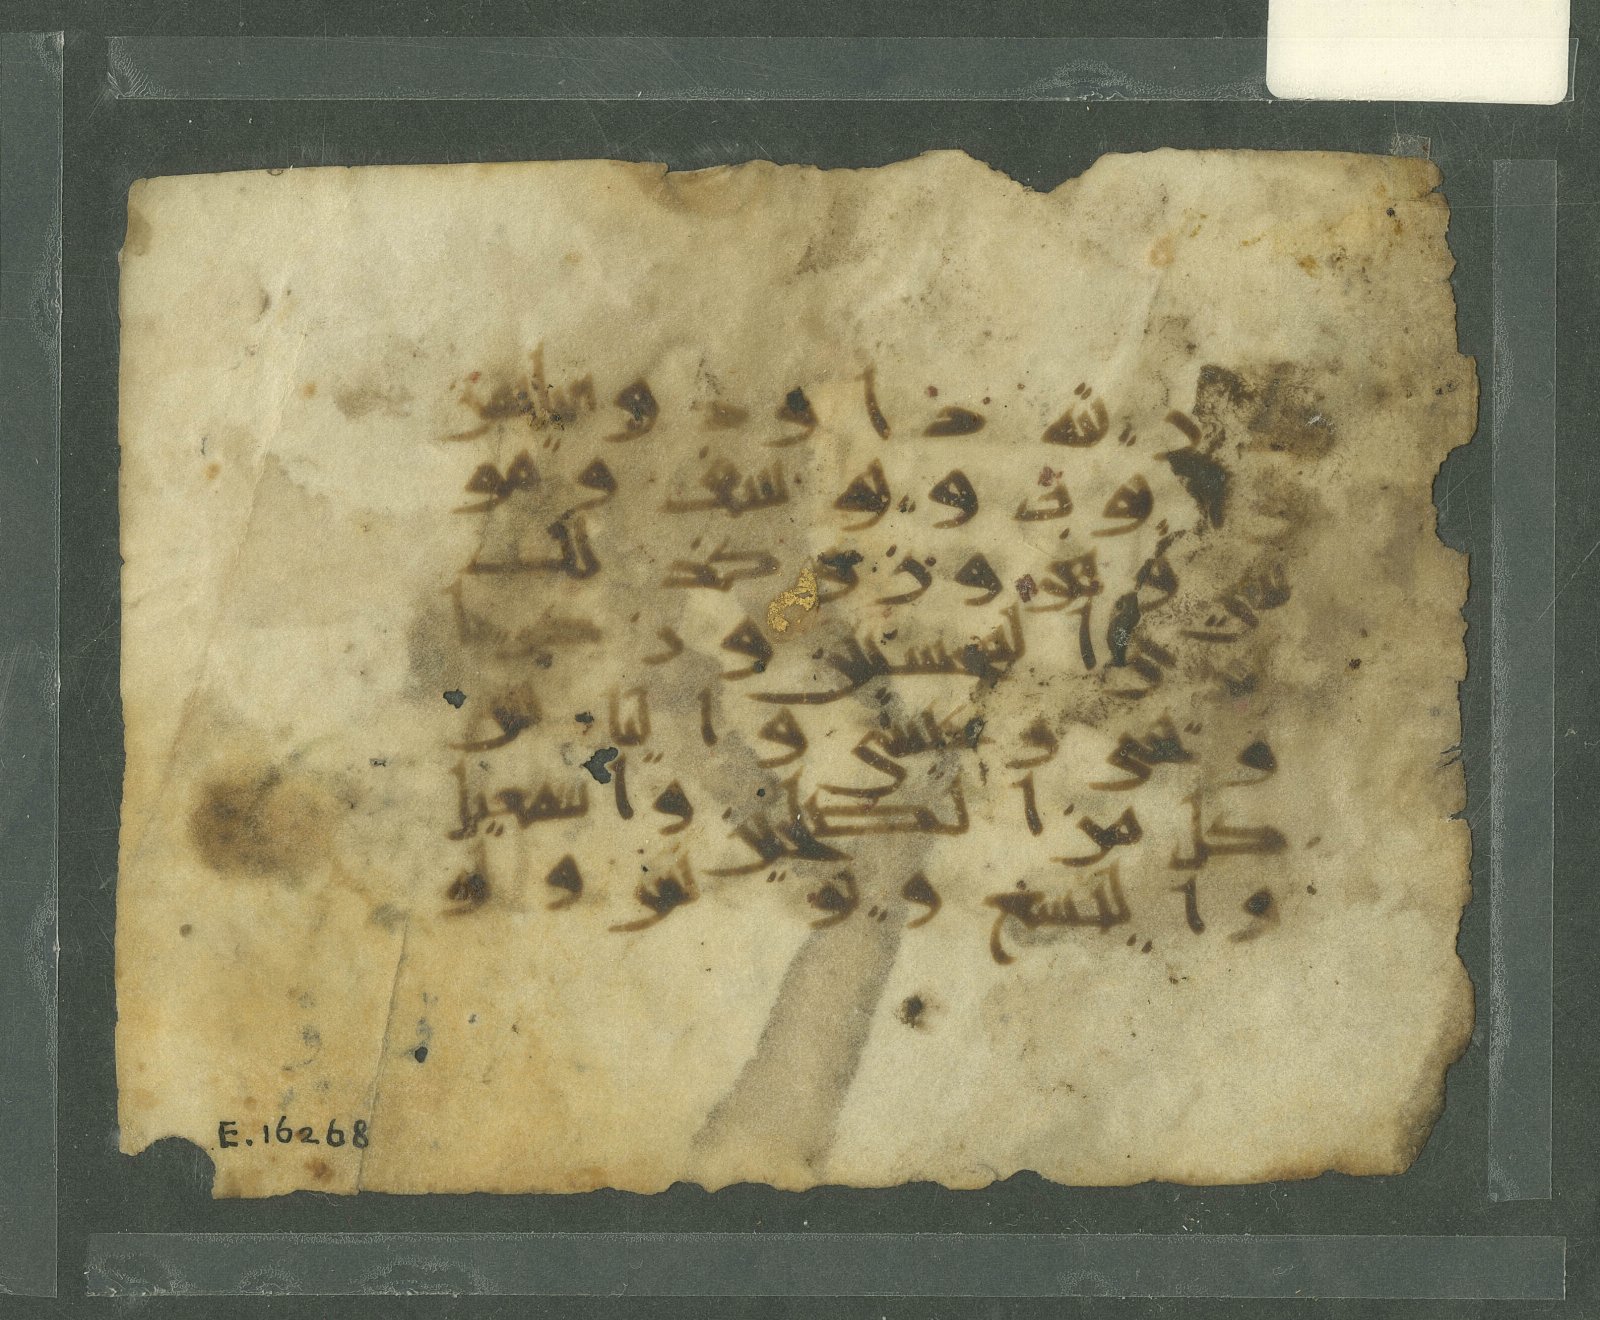 ذريته داود وسليمن
وايوب ويوسف ومو
سى وهرون وكذلك
نجزى المحسنين وزكريا
ويحيى وعيسى والياس
كل من الصلحين واسمعيل
واليسع ويونس ولو
E.16268